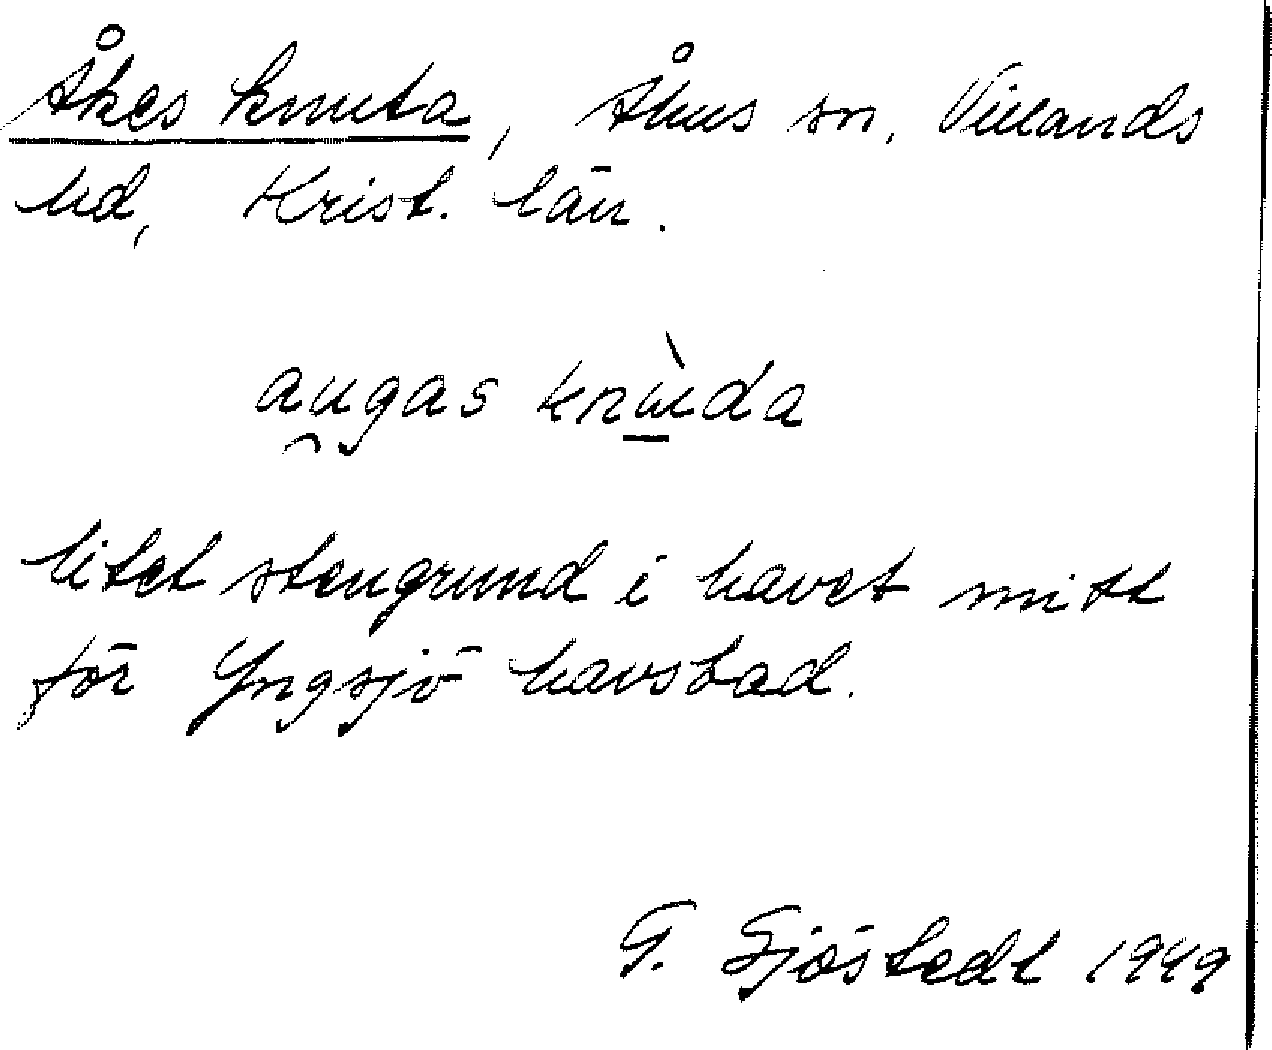 Åkes knuta, Åhus sn, Villands
hd, Krist. län.
au̯gas knù̱da
litet stengrund i havet mitt
för Yngsjö havsbad.
G. Sjöstedt 1949